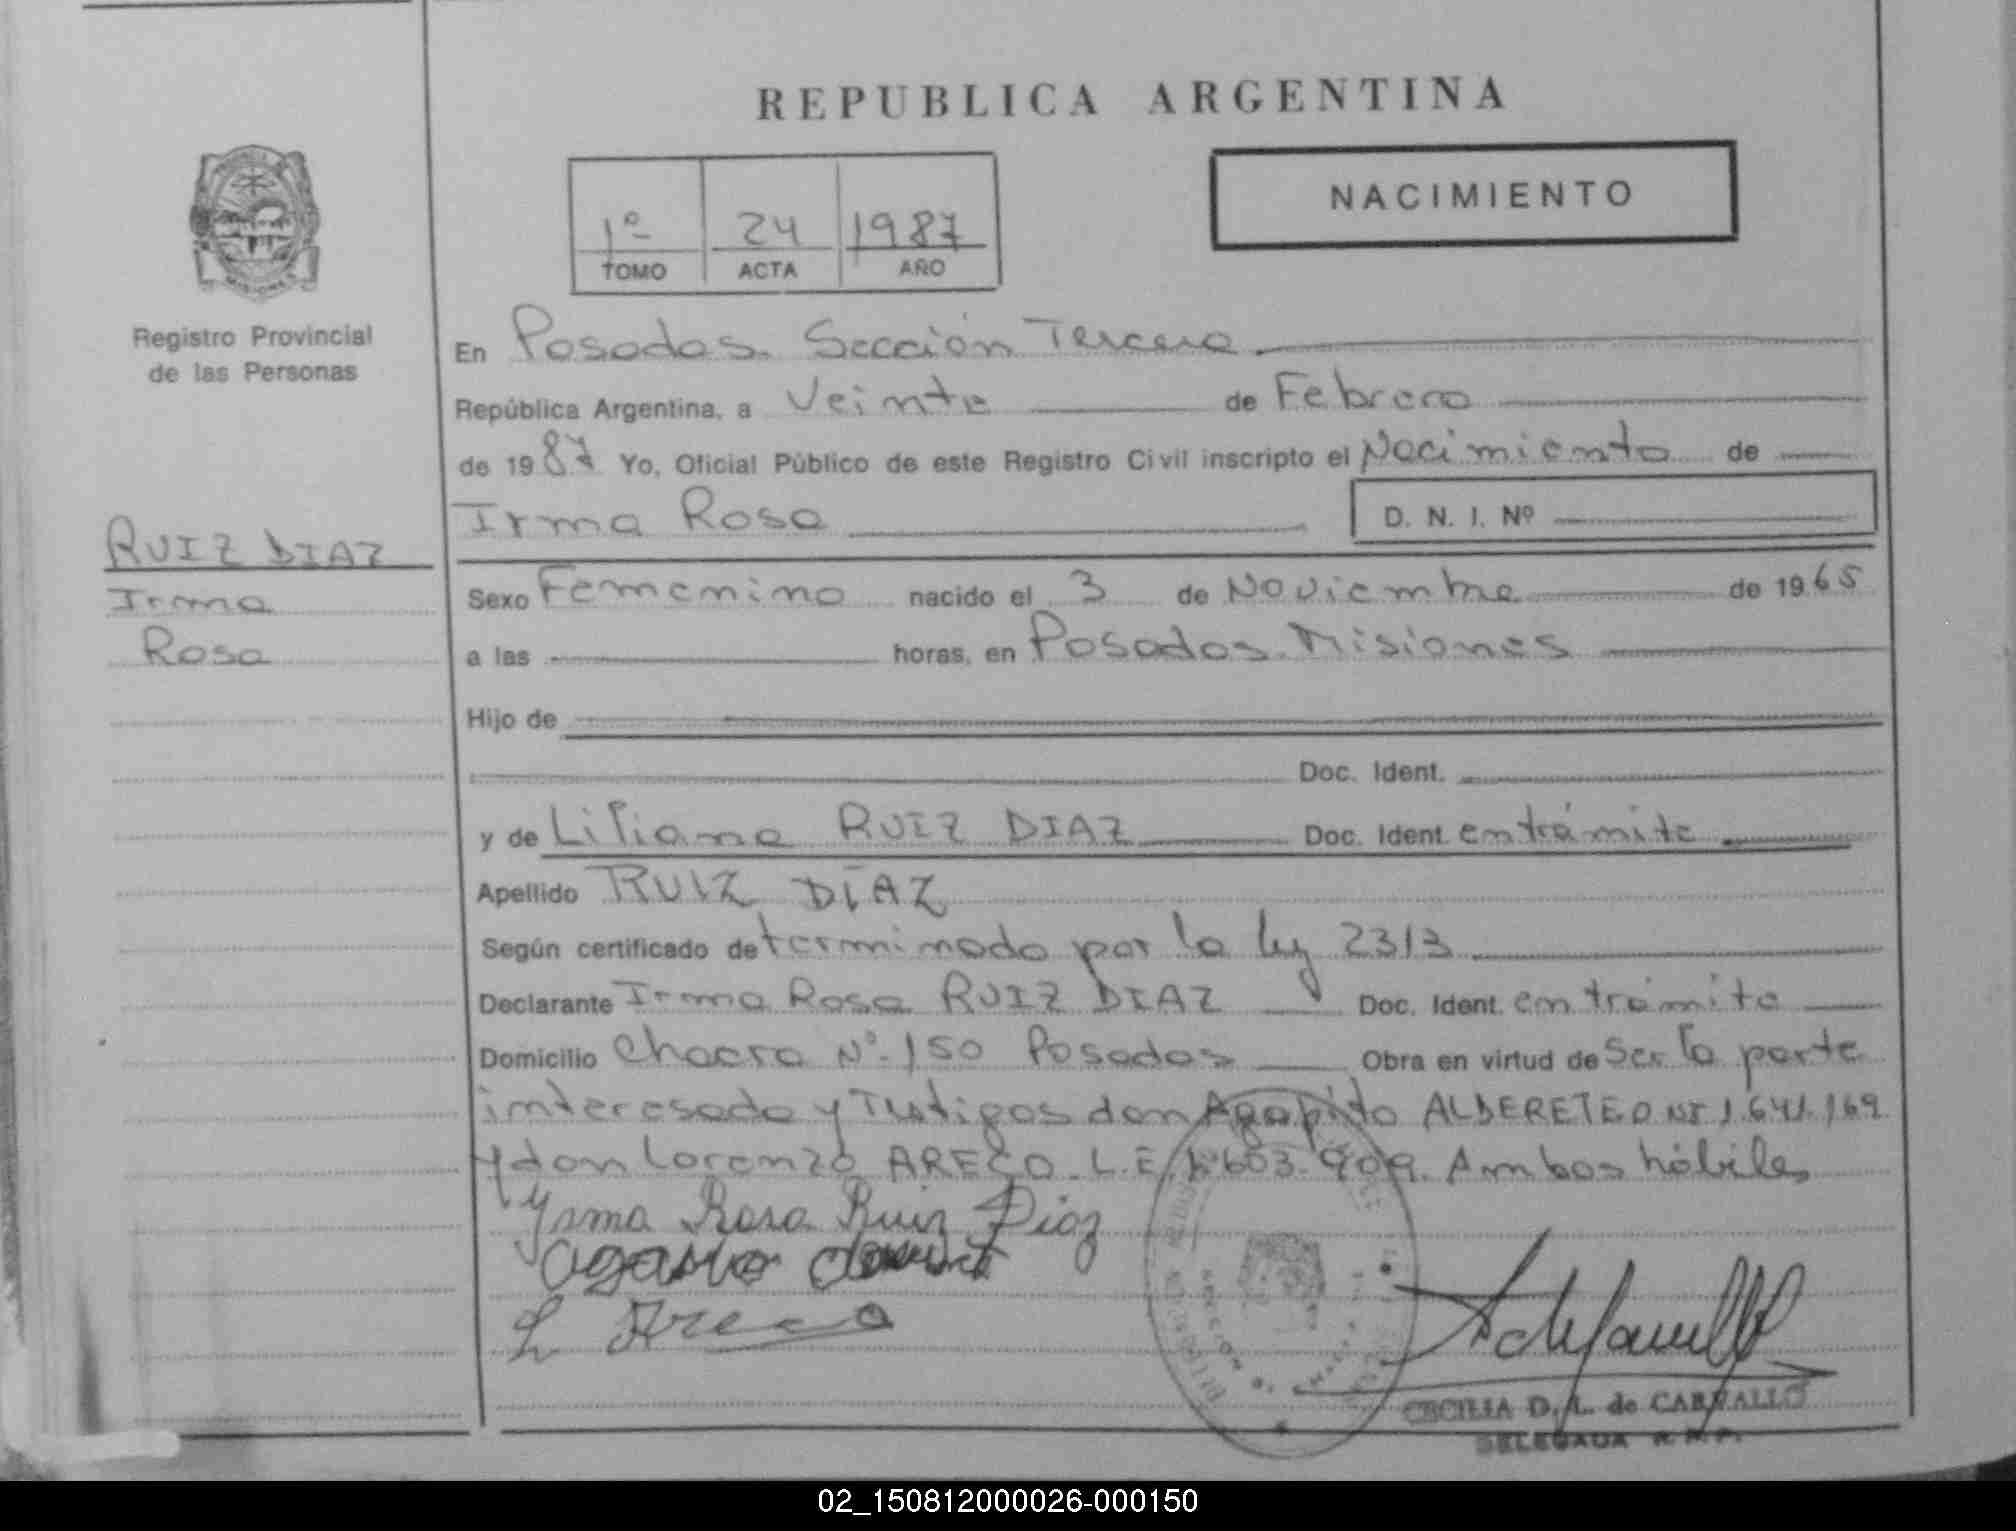 REPUBLICA ARGENTINA
NACIMIENTO
1º 24 1987
TOMO ACTA AÑO
Registro Provincial
de las Personas
RUIZ DIAZ
Irma
Rosa
En Posadas. Sección Tercera
República Argentina, a Veinte de Febrero
de 1987 Yo, Oficial Público de este Registro Civil inscripto el Nacimiento de
Irma Rosa D. N. I. Nº
Sexo Femenino nacido el 3 de Noviembre de 1965
a las horas, en Posadas. Misiones
Hijo de
Doc. Ident.
y de Liliana RUIZ DIAZ Doc. Ident. en trámite
Apellido RUIZ DÍAZ
Según certificado determinado por la ley 2313
Declarante Irma Rosa RUIZ DIAZ Doc. Ident. en trámite
Domicilio Chacra Nº 150 Posadas Obra en virtud de Ser la parte
interesada y Testigos don Agapito ALDERETE D NI 1.641.169
y don Lorenzo ARECO. L.E. 603.909. Ambos hábiles
Yrma Rosa Ruiz Diaz
L Areco
CECILIA D. L. de CARVALLO
DELEGADA R.P.P.
02_150812000026-000150